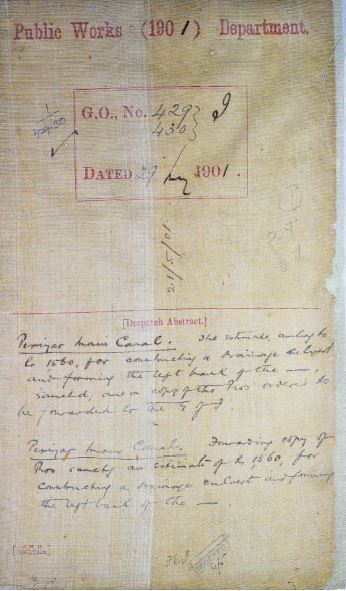 Public Works (1901) Department.
G.O., No. 429 } I
430 }
DATED 29 May 1901.
21/5/01
[Despatch Abstract.]
Periyar Main Canal. The estimate, amtng to
Rs 1560, for constructing a drainage culvert
and forming the left bank of the —,
sanctd, and a copy of the Pros ordered to
be forwarded to the G of I.
Periyar Main Canal. Forwarding copy of
Pros sanctg an estimate of Rs 1,560, for
constructing a drainage culvert and forming
the left bank of the —.